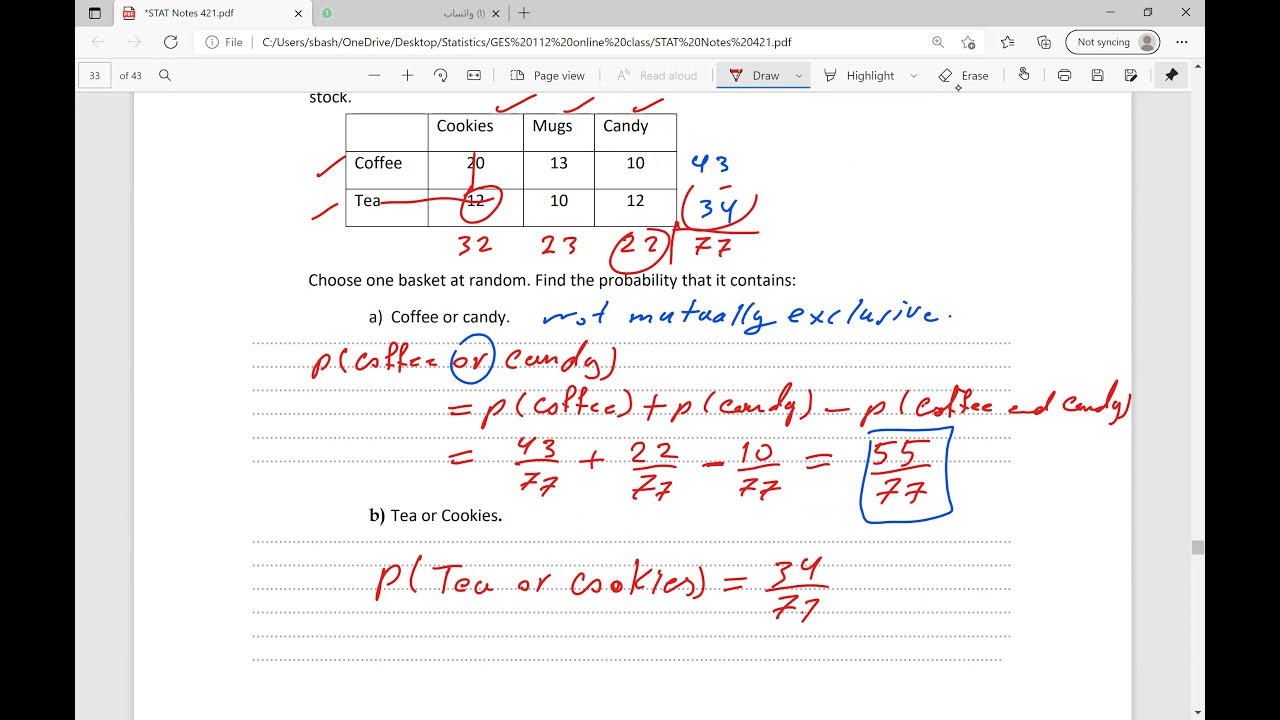 *STAT Notes 421.pdf
(1) واتساب
File C:/Users/sbash/OneDrive/Desktop/Statistics/GES%20112%20online%20class/STAT%20Notes%20421.pdf Not syncing
33 of 43 Page view Read aloud Draw Highlight Erase
stock.
Cookies Mugs Candy
Coffee 20 13 10 43
Tea 12 10 12 34
32 23 22 77
Choose one basket at random. Find the probability that it contains:
a) Coffee or candy. not mutually exclusive.
p(coffee or candy)
= p(coffee) + p(candy) - p(coffee and candy)
= 43/77 + 22/77 - 10/77 = 55/77
b) Tea or Cookies.
p(Tea or cookies) = 34/77